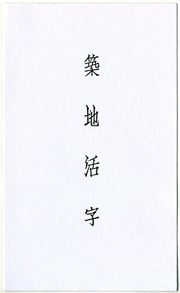 築地活字